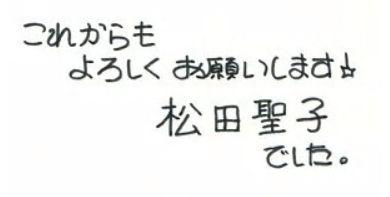 これからも
よろしくお願いします☆
松田聖子
でした。